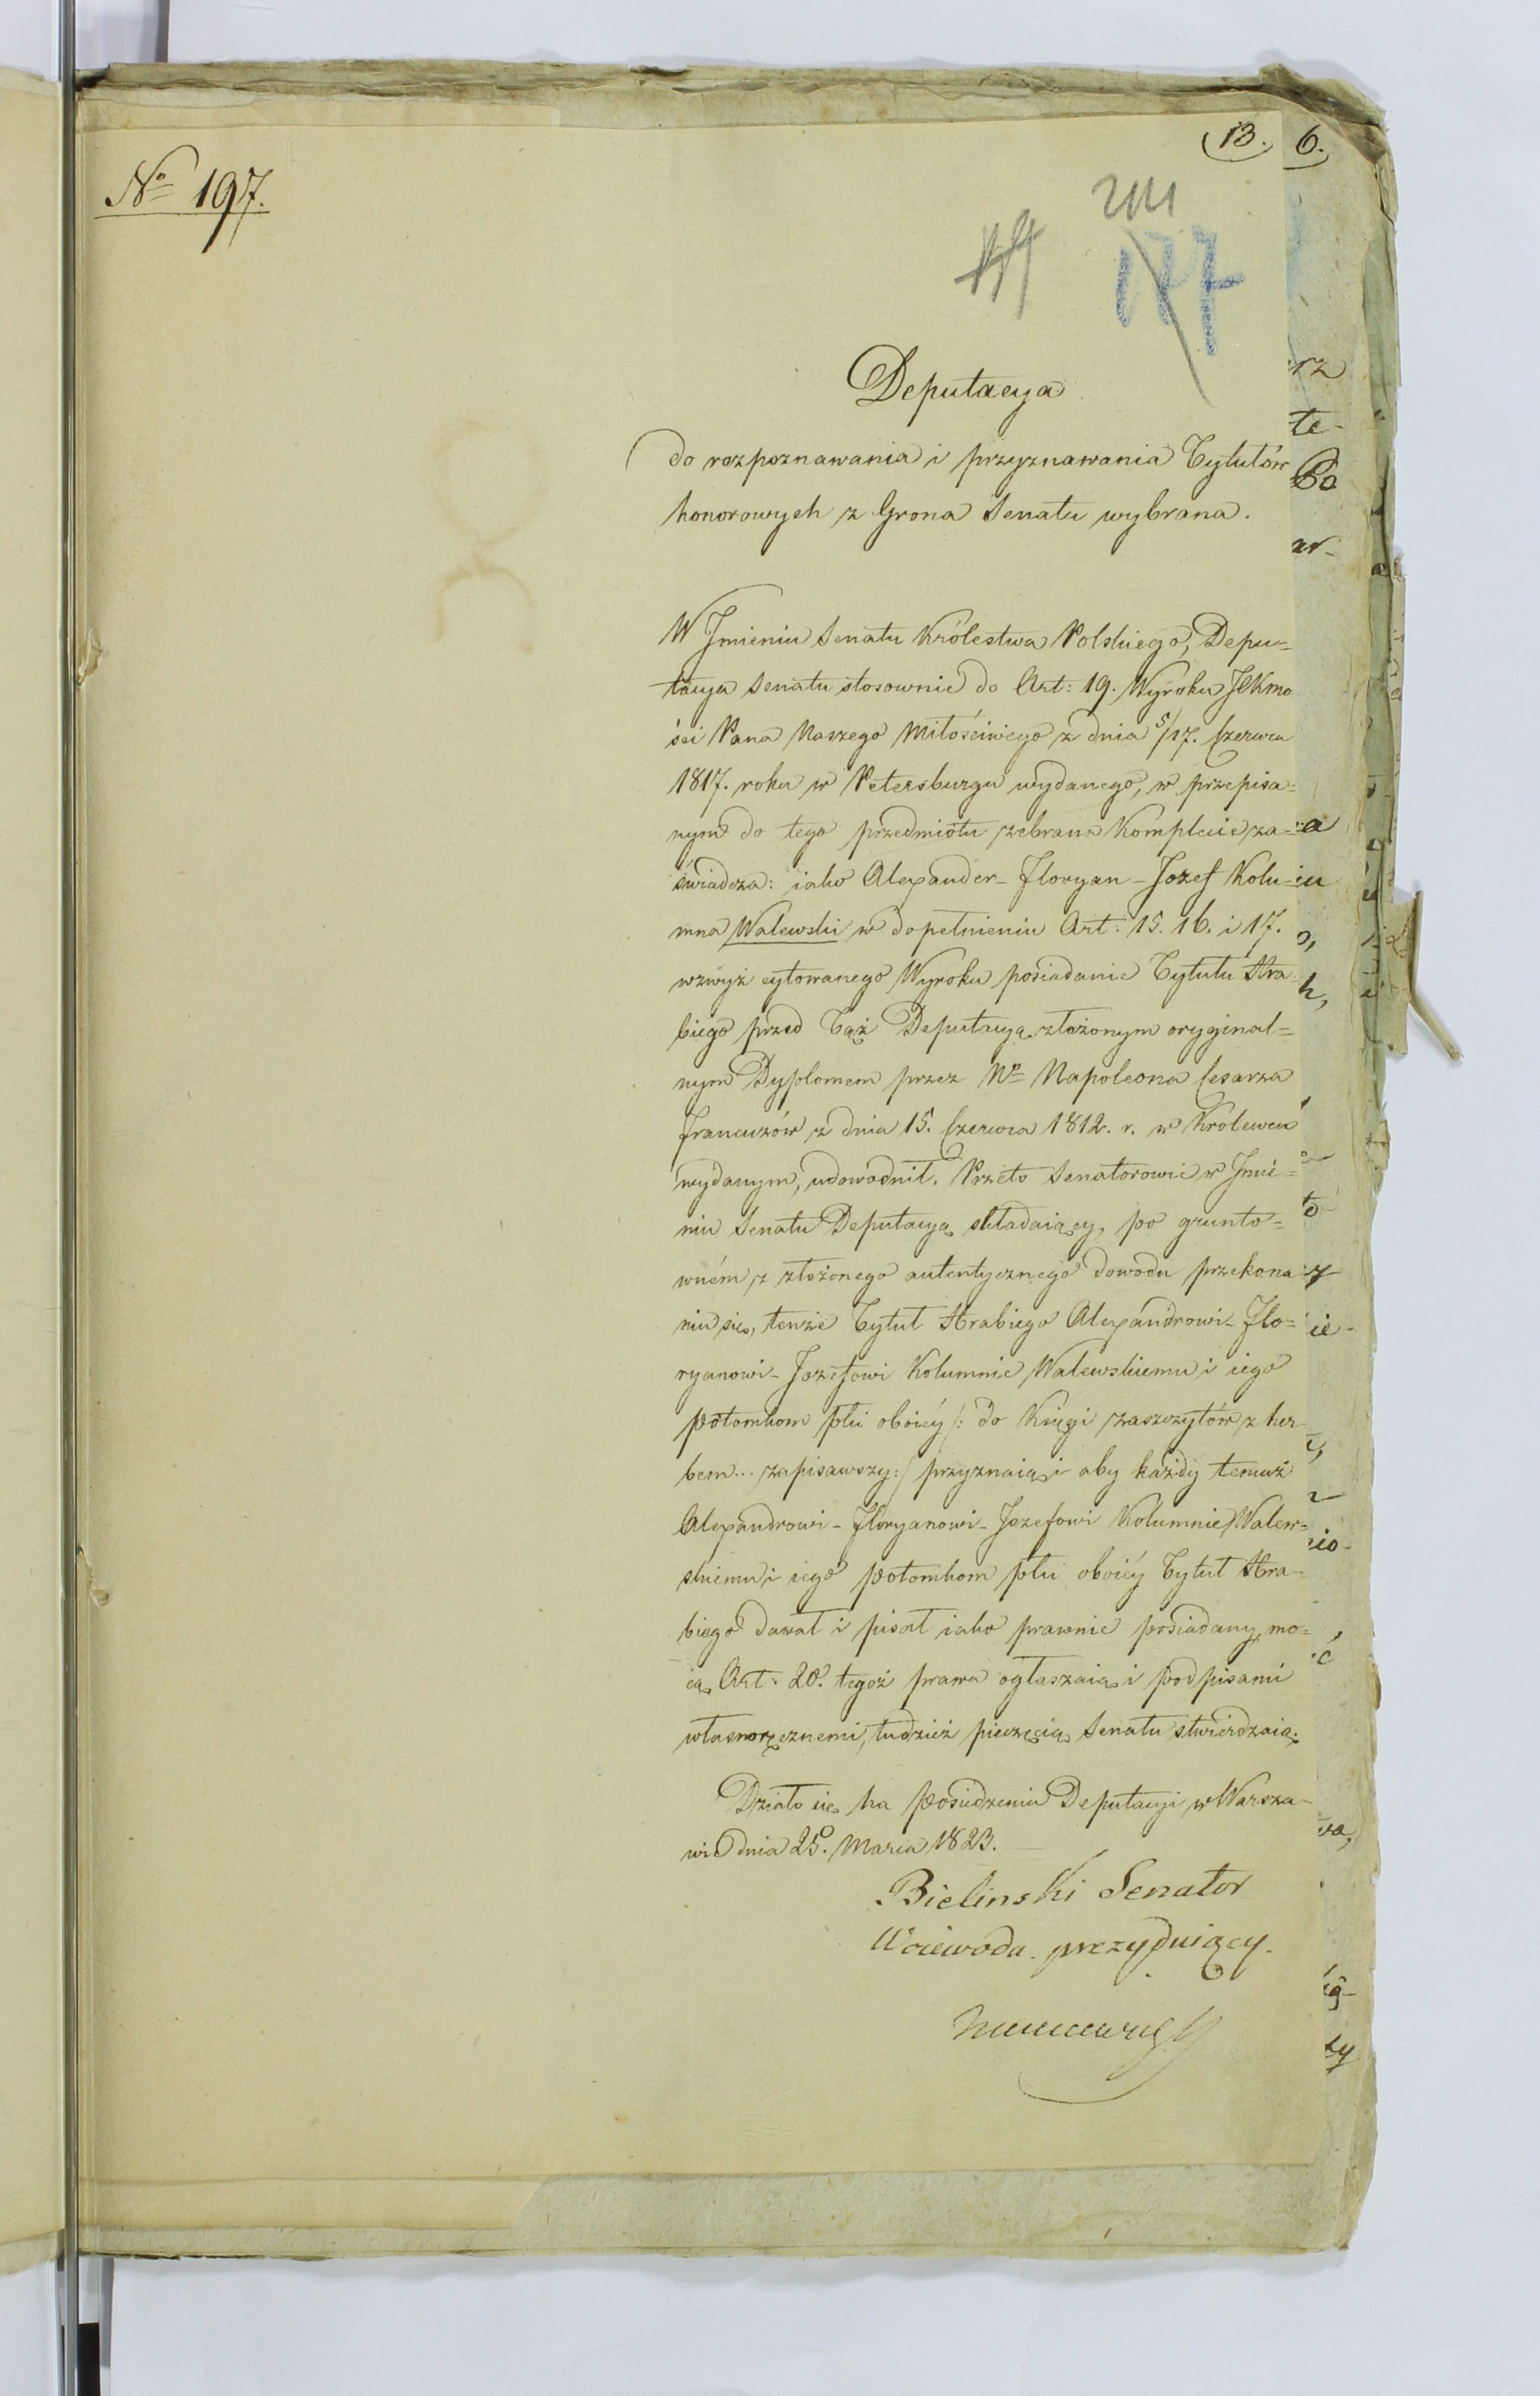 13. 6.
No 197.
211
177
Deputacya
do rozpoznawania i przyznawania Tytułów
honorowych z Grona Senatu wybrana.
W Jmieniu Senatu Królestwa Polskiego, Depu=
tacya Senatu stosownie do Art: 19. Wyroku JCKmo
ści Pana Naszego Miłościwego z dnia 5/17. Czerwca
1817. roku w Petersburgu wydanego, w przepisa=
nym do tego przedmiotu zebrana Komplecie za-
świadcza: iako Alexander-Floryan-Jozef Kolu-
mna Walewski w dopełnieniu Art: 15. 16. i 17.
wzwyż cytowanego Wyroku posiadanie Tytułu Hra-
biego przed Tąż Deputacyą złożonym oryginal=
nym Dyplomem przez Nº= Napoleona Cesarza
Francuzów z dnia 15. Czerwca 1812. r. w Królewcu
wydanym, udowodnił. Przeto Senatorowie w Jmie=
niu Senatu Deputacyą składaiący, po grunto=
wném z złożonego autentycznego dowodu przekona
niu się, tenże Tytuł Hrabiego Alexandrowi-Flo=
ryanowi-Jozefowi Kolumnie Walewskiemu i iego
potomkom płci oboiéy /: do Księgi zaszczytów z her-
bem... zapisawszy:/ przyznaią i aby każdy temuż
Alexandrowi-Floryanowi-Jozefowi Kolumnie Walew=
skiemu i iego potomkom płci oboiéy Tytuł Hra-
biego dawał i pisał iako prawnie posiadany, mo=
cą Art: 20. tegoż prawa ogłaszaią i podpisami
własnoręcznemi, tudzież pieczęcią Senatu stwierdzaią.
Działo się na posiedzeniu Deputacyi w Warsza-
wie dnia 25. Marca 1823.
Bielinski Senator
Woiewoda prezyduiący.